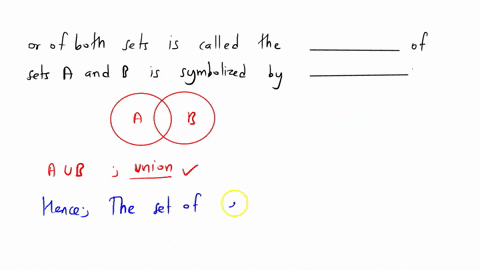 or of both sets is called the ________ of
sets A and B is symbolized by ________.
A B
A ∪ B ; union ✓
Hence; The set of ,